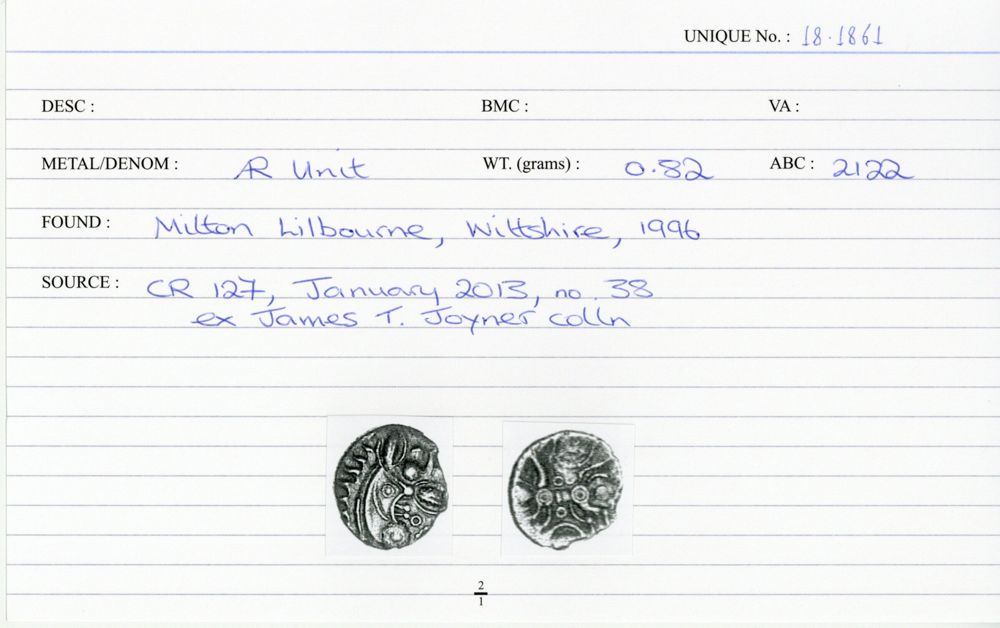 UNIQUE No. : 18.1861
DESC : BMC : VA :
METAL/DENOM : AR Unit WT. (grams) : 0.82 ABC : 2122
FOUND : Milton Lilbourne, Wiltshire, 1996
SOURCE : CR 127, January 2013, no. 38
ex James T. Joyner colln
2
1